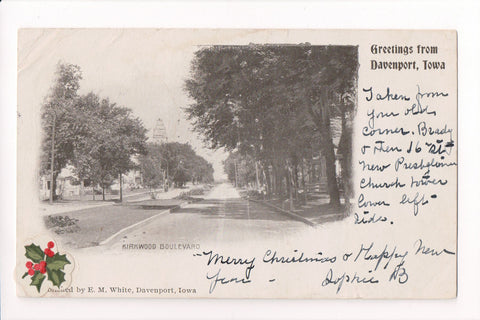 Greetings from
Davenport, Iowa
Taken from
your old
corner. Brady
& then 16 St
New Presbyterian
Church tower
lower left
side.
KIRKWOOD BOULEVARD
"Merry Christmas & Happy New
Year"
Sophie B
by E. M. White, Davenport, Iowa